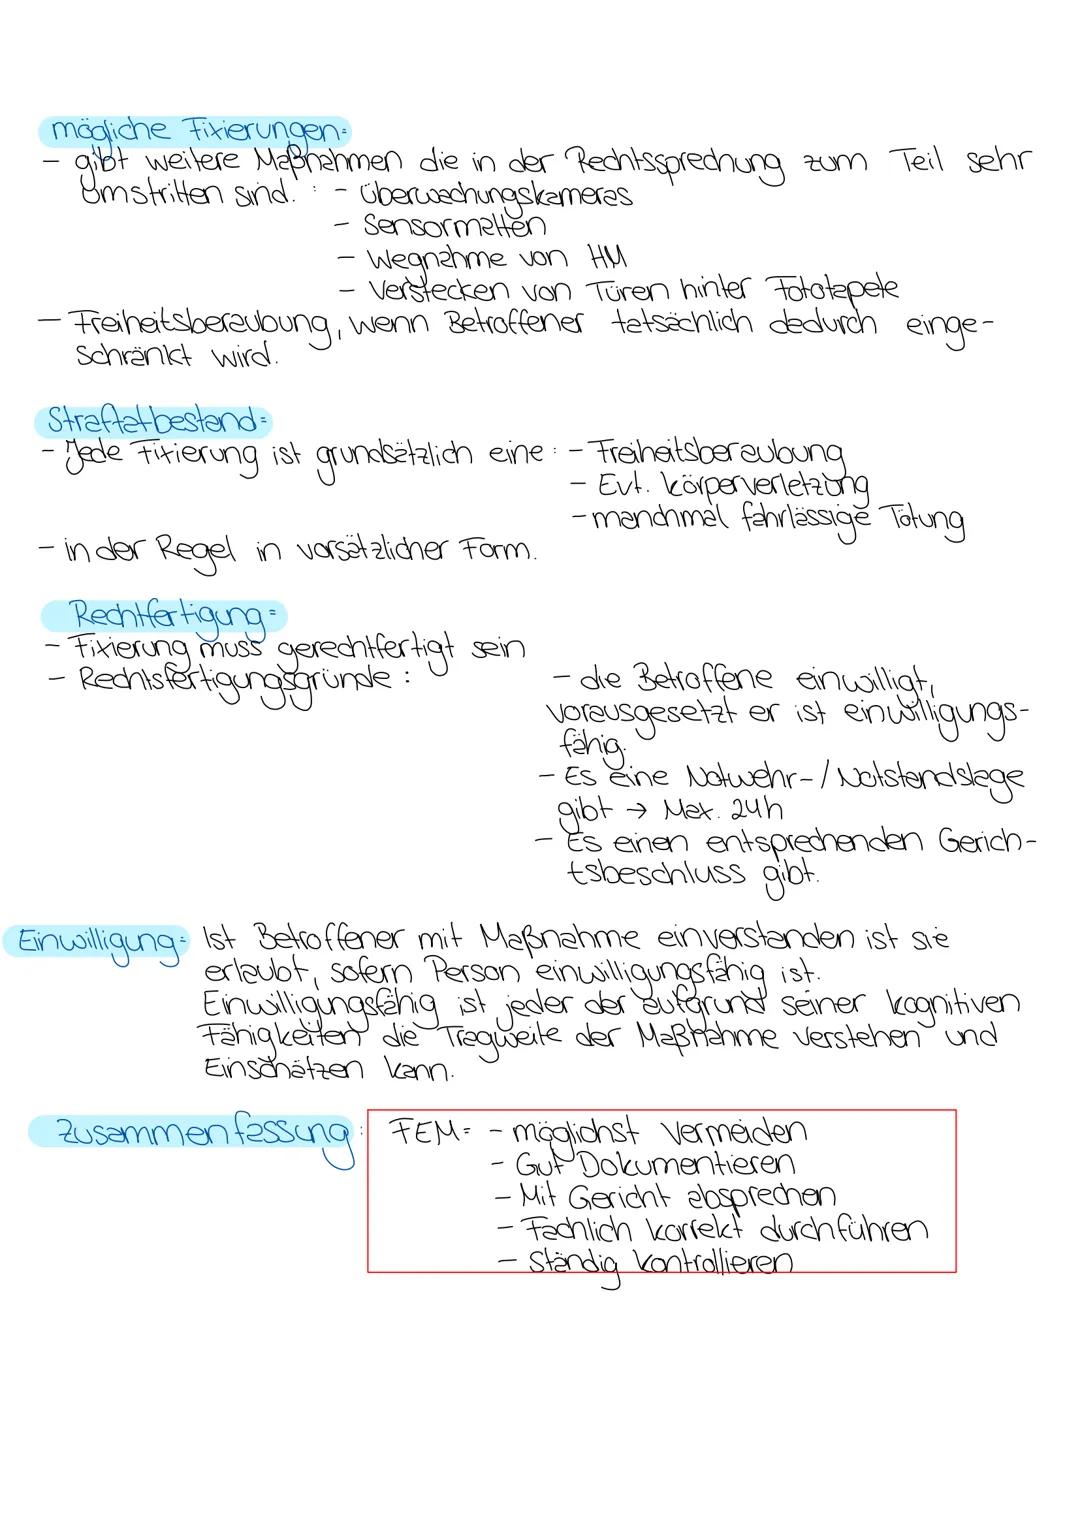 mögliche Fixierungen:
- gibt weitere Maßnahmen die in der Rechtssprechung zum Teil sehr
umstritten sind. : - Überwachungskameras
- Sensormatten
- Wegnahme von HM
- Verstecken von Türen hinter Fototapete
- Freiheitsberaubung, wenn Betroffener tatsächlich dadurch einge-
schränkt wird.
Straftatbestand:
- Jede Fixierung ist grundsätzlich eine: - Freiheitsberaubung
- Evt. Körperverletzung
- manchmal fahrlässige Tötung
- in der Regel in vorsätzlicher Form.
Rechtfertigung:
- Fixierung muss gerechtfertigt sein
- Rechtsfertigungsgründe :
- die Betroffene einwilligt,
vorausgesetzt er ist einwilligungs-
fähig.
- Es eine Notwehr-/Notstandslage
gibt → Max. 24h
- Es einen entsprechenden Gerich-
tsbeschluss gibt.
Einwilligung: Ist Betroffener mit Maßnahme einverstanden ist sie
erlaubt, sofern Person einwilligungsfähig ist.
Einwilligungsfähig ist jeder der aufgrund seiner kognitiven
Fähigkeiten die Tragweite der Maßnahme verstehen und
Einschätzen kann.
Zusammenfassung: FEM: - möglichst vermeiden
- Gut Dokumentieren
- Mit Gericht absprechen
- Fachlich korrekt durchführen
- Ständig kontrollieren